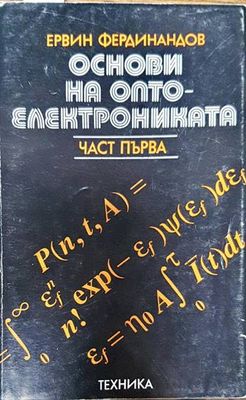 ЕРВИН ФЕРДИНАНДОВ
ОСНОВИ
НА ОПТО-
ЕЛЕКТРОНИКАТА
ЧАСТ ПЪРВА
P(n, t, A) =
= ∫₀^∞ (εⱼⁿ / n!) exp(−εⱼ) ψ(εⱼ) dεⱼ
εⱼ = η₀ A ∫₀^τ Ī(t) dt
ТЕХНИКА